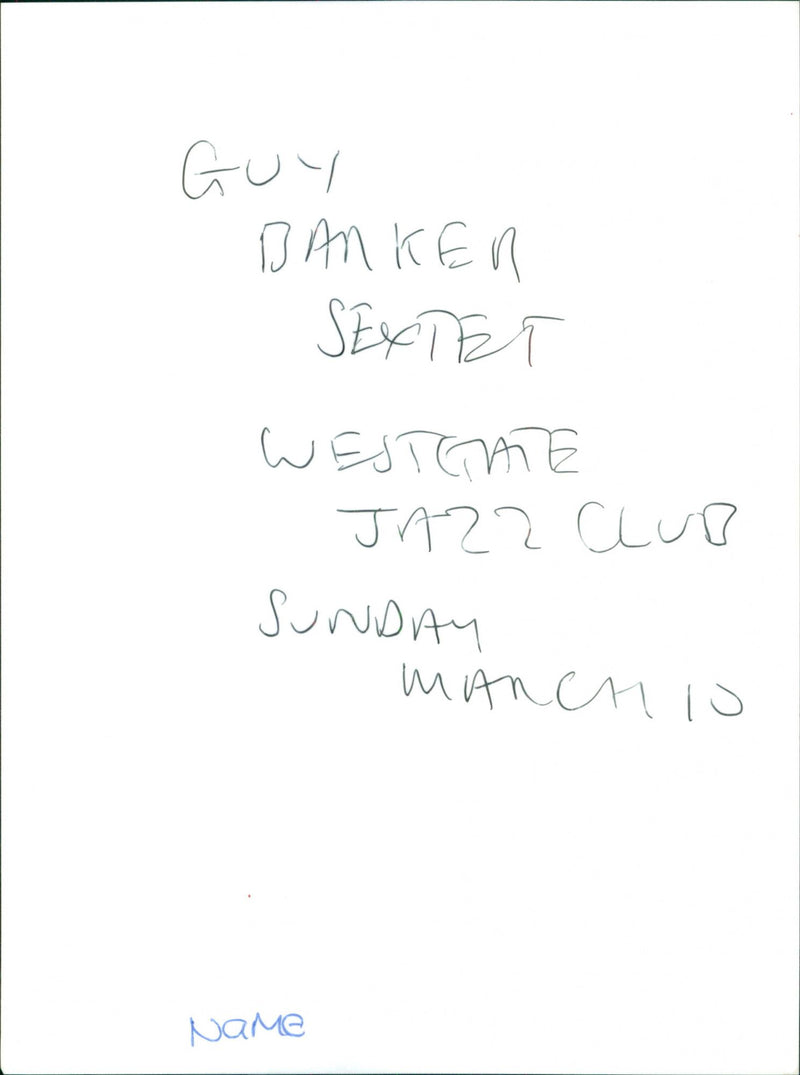 GUY
BARKER
SEXTET
WESTGATE
JAZZ CLUB
SUNDAY
MARCH 10
NAME